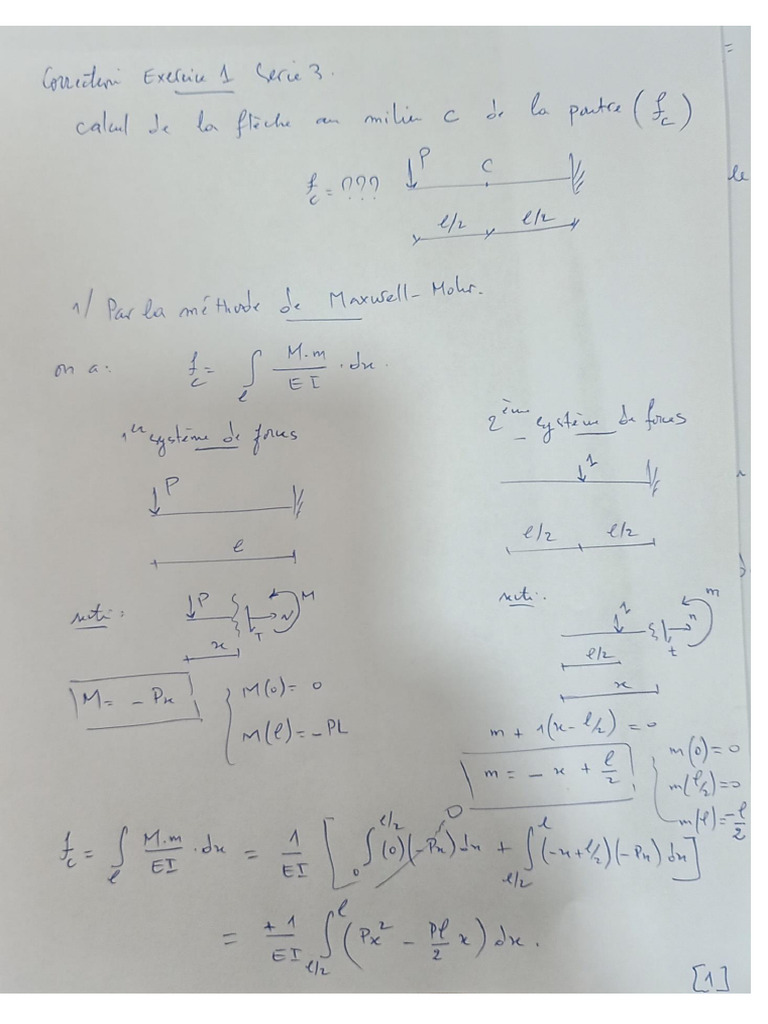 Correction Exercice 1 Serie 3.
calcul de la flèche au milieu C de la poutre (f_c)
f_c = ??? P C
l/2 l/2
1/ Par la méthode de Maxwell-Mohr.
on a: f_c = ∫_l M.m/EI . dx.
1er système de forces
2ème système de forces
P
1
l
l/2 l/2
P M N T
x
1 m n t
l/2
x
M = - Px
{ M(0) = 0
M(l) = - PL
m + 1(x - l/2) = 0
m = - x + l/2
{ m(0) = 0
m(l/2) = 0
m(l) = -l/2
f_c = ∫_l M.m/EI . dx = 1/EI [ ∫_0^{l/2} (0)(-Px) dx + ∫_{l/2}^{l} (-x + l/2)(-Px) dx ]
0
= +1/EI ∫_{l/2}^{l} (Px² - Pl/2 x) dx.
[1]